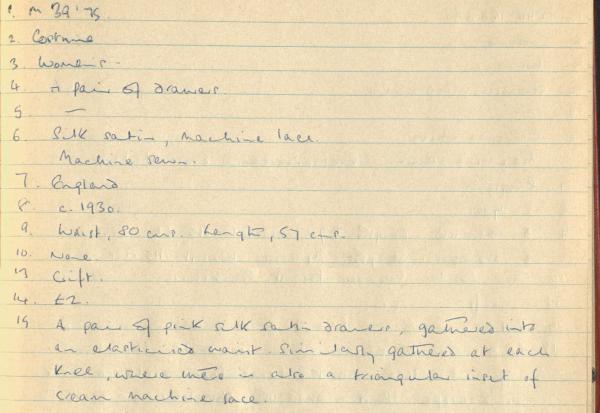 1. M 39'75.
2. Costume
3. Women's -
4. A pair of drawers.
5. —
6. Silk satin, machine lace.
Machine sewn.
7. England
8. c. 1930.
9. Waist, 80 cms. Length, 57 cms.
10. None.
13 Gift.
14. £2.
15 A pair of pink silk satin drawers, gathered into
an elasticised waist. Similarly gathered at each
knee, where there is also a triangular inset of
cream machine lace.